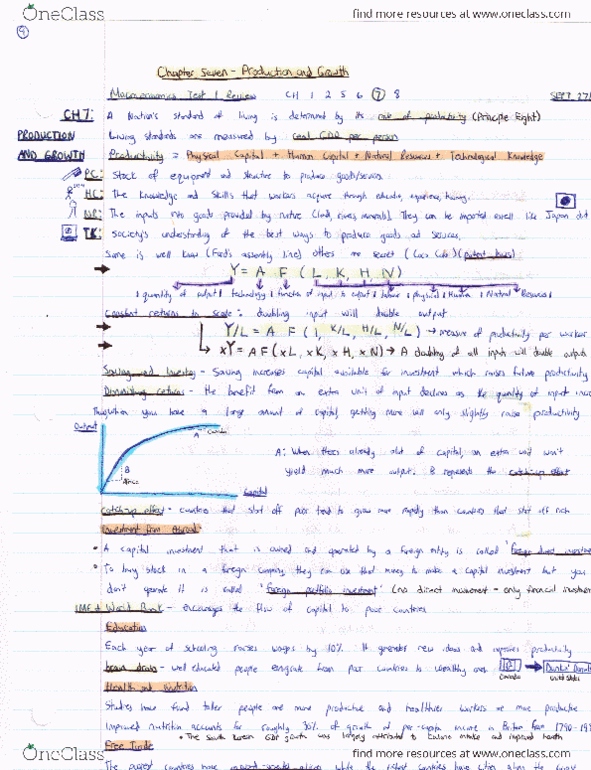 OneClass
find more resources at www.oneclass.com
Chapter Seven - Production and Growth
Macroeconomics Test 1 Review CH 1 2 5 6 7 8 SEPT. 27
CH 7: A Nation's standard of living is determined by its rate of productivity (Principle Eight)
PRODUCTION Living standards are measured by real GDP per person
AND GROWTH Productivity = Physical Capital + Human Capital + Natural Resources + Technological Knowledge
PC: Stock of equipment and structure to produce goods/services
HC: The knowledge and skills that workers acquire through education, experience, training.
NR: The inputs into goods provided by native (land, rivers, minerals). They can be imported aswell like Japan
TK: Society's understanding of the best ways to produce goods and services.
Some is well know (Ford's assembly line) others are secret (Coca Cola)
Y = A F ( L, K, H, N )
quantity of output technology function of input to output labour physical Human Natural Resources
Constant returns to scale: doubling input will double output
Y/L = A F ( 1, K/L, H/L, N/L ) → measure of productivity per worker
xY = A F ( xL, xK, xH, xN ) → A doubling of all inputs will double outputs
Saving and Investing - Saving increases capital available for investment which raises future productivity
Diminishing returns - the benefit from an extra unit of input declines as the quantity of input
when you have a large amount of capital, getting more will only slightly raise productivity
Output
A
B
Africa
Capital
A: When theres already alot of capital, an extra unit won't
yield much more output. B represents the catch-up effect
Catch-up effect - countries that start off poor tend to grow more rapidly than countries that start off rich
Investment from Abroad
• A capital investment that is owned and operated by a foreign entity is called 'foreign direct investment
• To buy stock in a foreign company, they can use that money to make a capital investment but you
don't operate it is called 'foreign portfolio investment' (no direct involvement - only financial
IMF + World Bank - encourages the flow of capital to poor countries
Education
Each year of schooling raises wages by 10%. It generates new ideas and improves productivity
brain drain - well educated people emigrate from poor countries to wealthy ones
Canada
United States
Health and Nutrition
Studies have found taller people are more productive and healthier workers are more productive
Improved nutrition accounts for roughly 30% of growth of per-capita income in Britain from 1790-
• The South Korean GDP growth was largely attributed to calorie intake and improved health
Free Trade
The poorest countries have while the richest countries have
OneClass
find more resources at www.oneclass.com